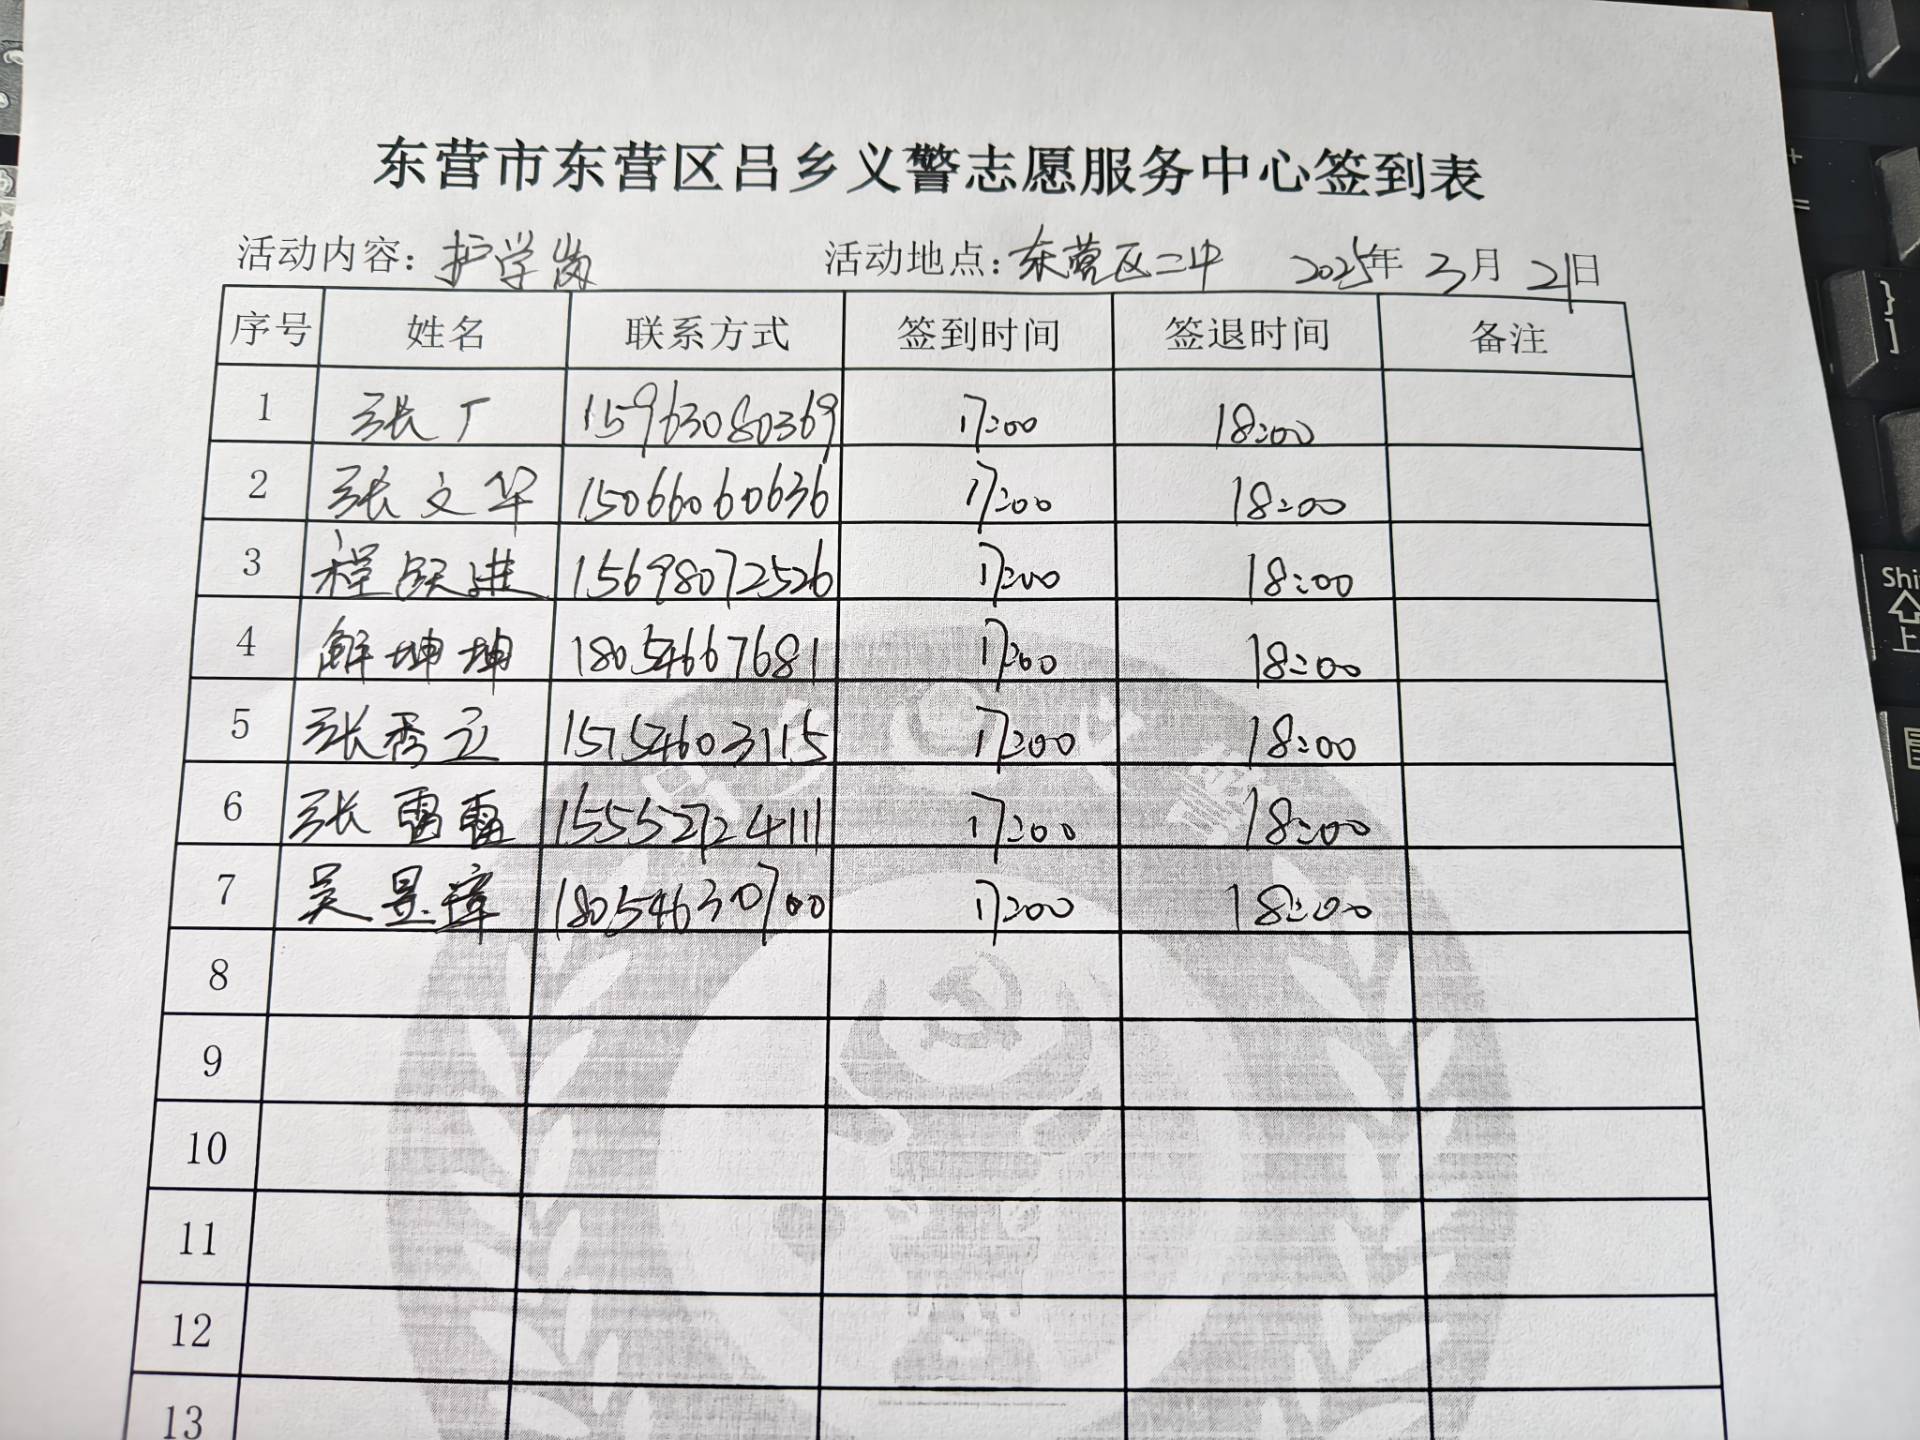 东营市东营区吕乡义警志愿服务中心签到表
活动内容：护学岗 活动地点：东营区二中 2025年 3月 21日
序号 姓名 联系方式 签到时间 签退时间 备注
1 张广 15963080369 17:00 18:00
2 张文华 15066060636 17:00 18:00
3 程跃进 15698072526 17:00 18:00
4 解坤坤 18054667681 17:00 18:00
5 张秀卫 15754603115 17:00 18:00
6 张雷雷 15552724111 17:00 18:00
7 吴昱璋 18054630700 17:00 18:00
8
9
10
11
12
13